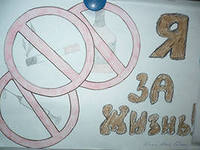 Я
ЗА
ЖИЗНЬ!